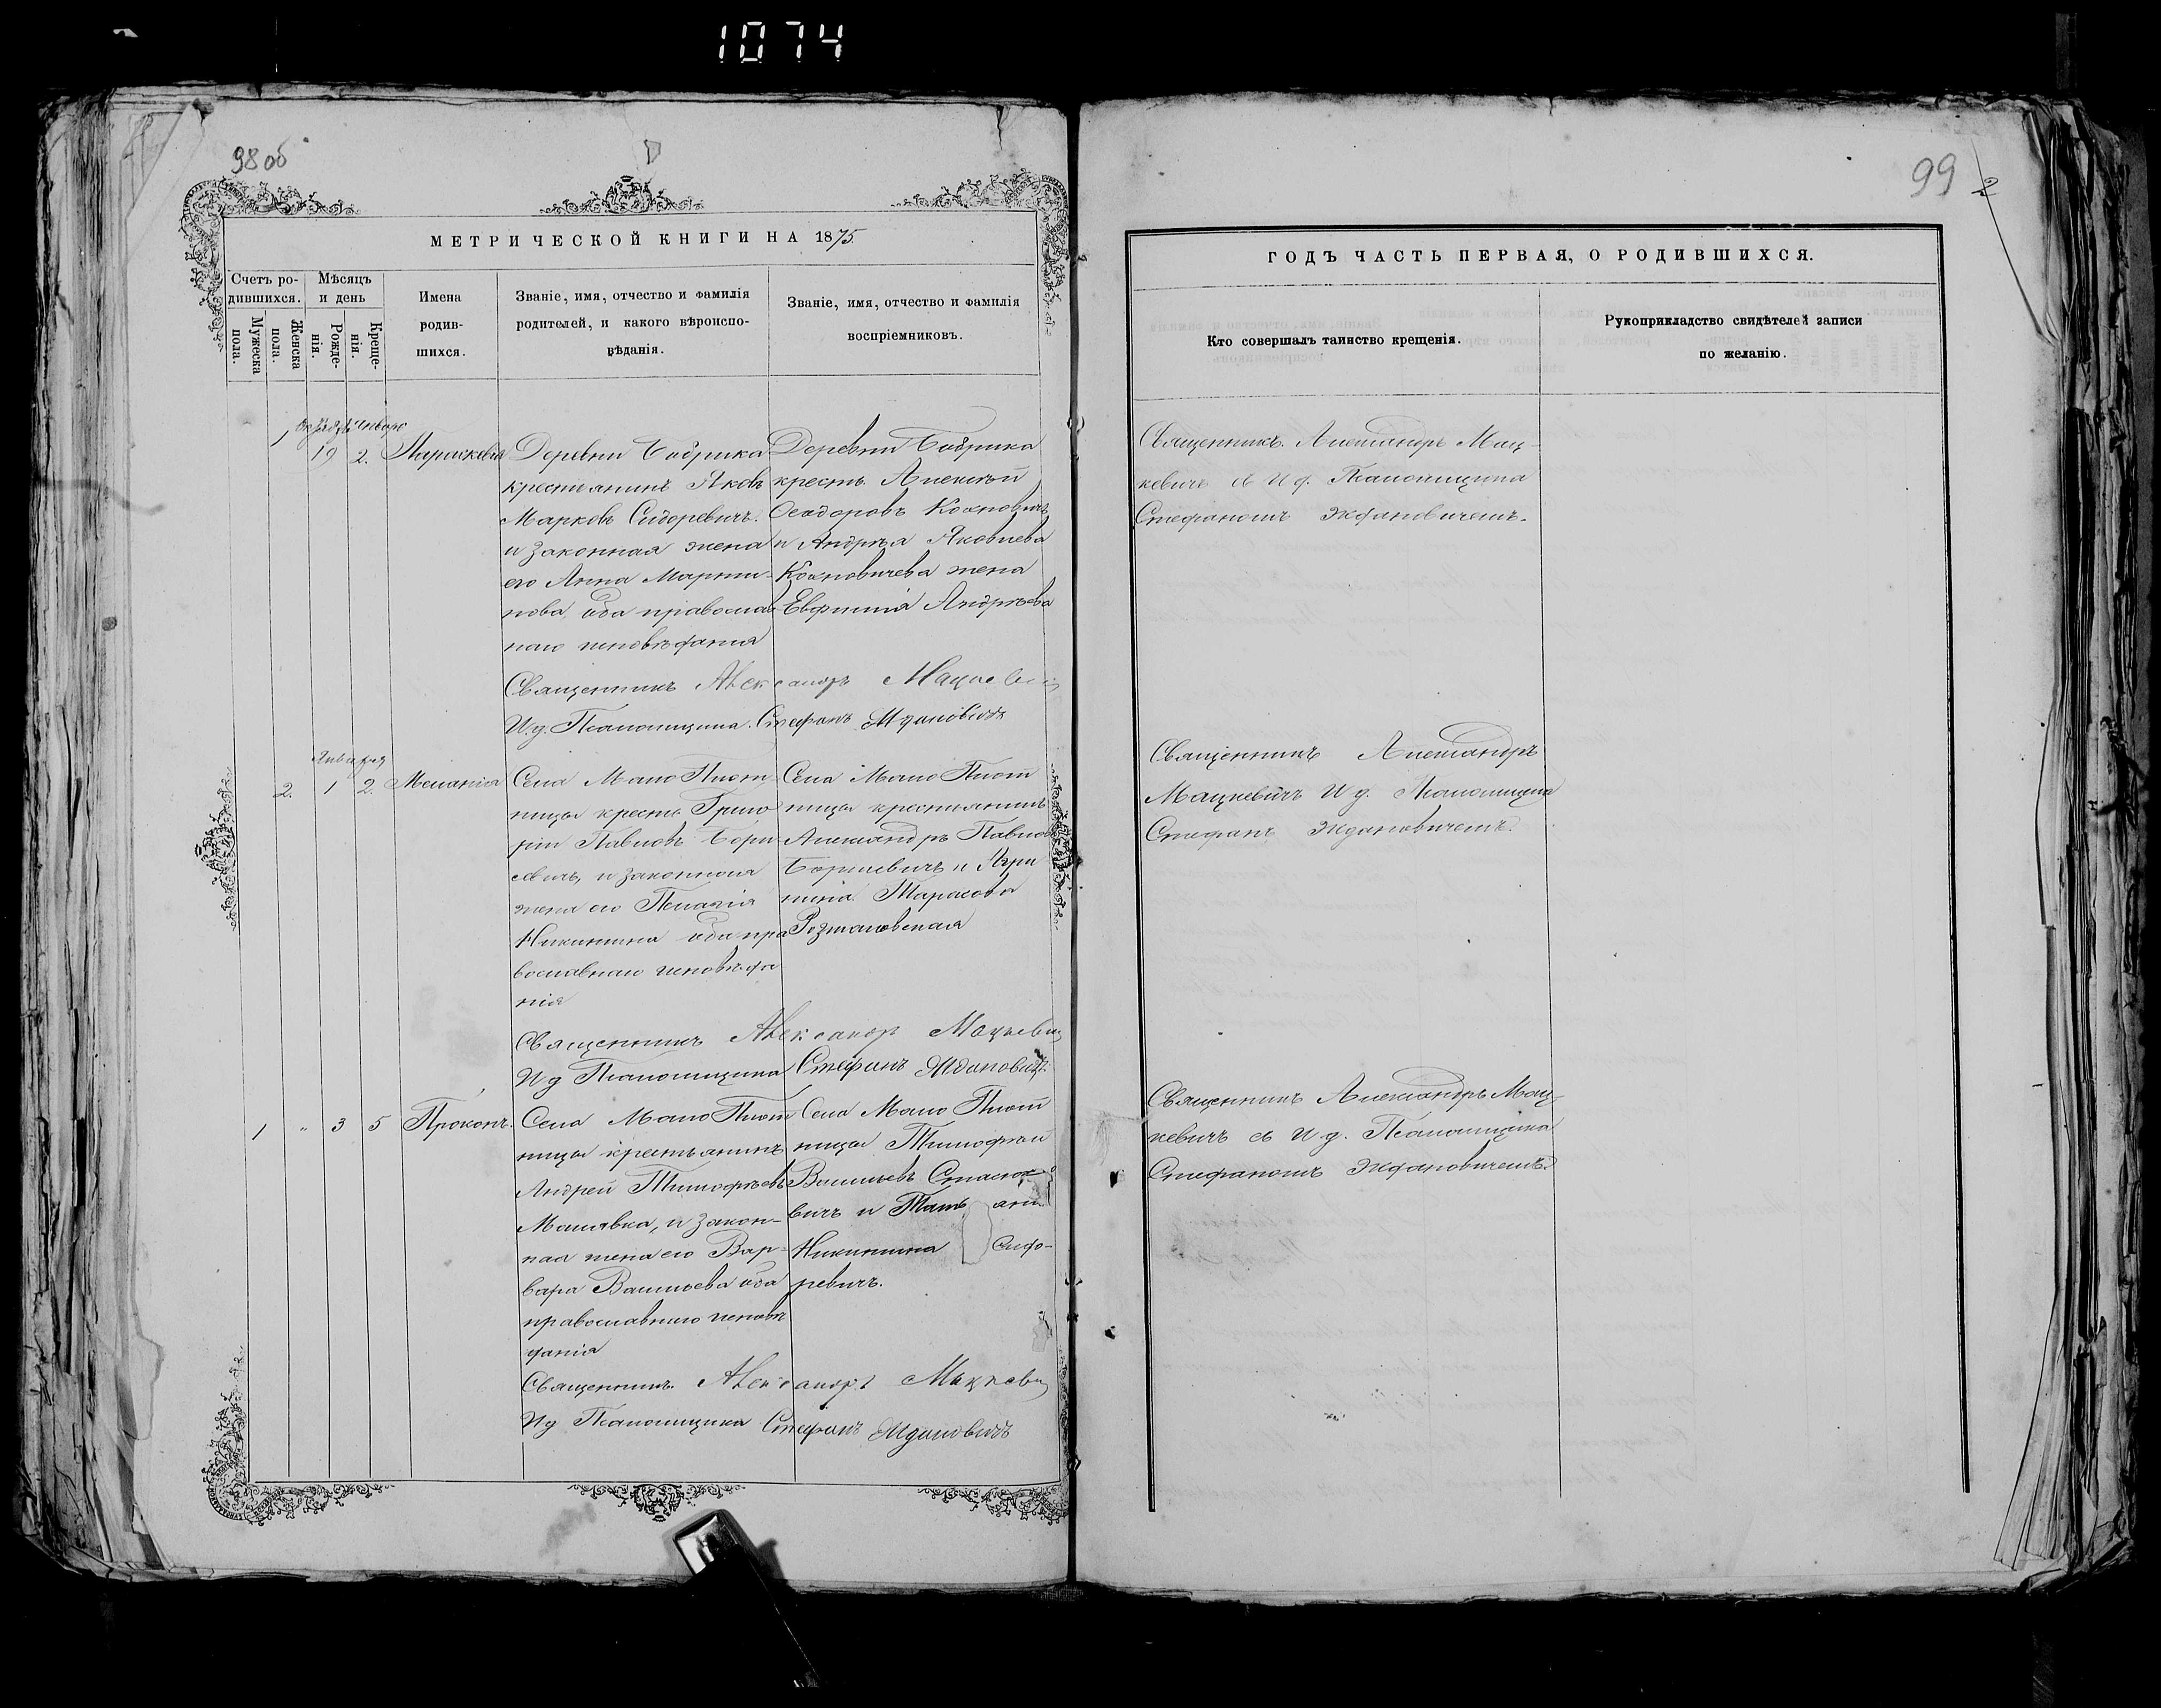 1074
98 об
99
2
МЕТРИЧЕСКОЙ КНИГИ НА 1875
Счетъ ро-
дившихся.
Мѣсяцъ
и день
Мужеска
пола.
Женска
пола.
Рожде-
нія.
Креще-
нія.
Имена
родив-
шихся.
Званіе, имя, отчество и фамилія
родителей, и какого вѣроиспо-
вѣданія.
Званіе, имя, отчество и фамилія
воспріемниковъ.
1
19 2. Параскева
Деревни Бобрика
крестьянинъ Яковъ
Марковъ Сидоревичъ.
и законная жена
его Анна Марти-
нова, оба православ
наго исповѣданія
Деревни Бобрика
крестъ. Алексѣй
Ѳеодоровъ Кохновичъ
и Андрѣя Яковлева
Кохновичева жена
Евфимія Андрѣева
Священникъ Александръ Мацкевич
И.д. Псаломщика. Стефанъ Ждановичъ
Января
2. 1 2. Меланія
Села Мало Плот
ницы крестъ. Григо
рій Павловъ Бори
севичъ, и законная
жена его Пелагія
Никитина оба пра
вославнаго исповѣда
нія
Села Мало Плот
ницы крестьянинъ
Александръ Павловъ
Борисевичъ и Агри
пина Тарасова
Священникъ Александръ Мацкевич
И д Псаломщика Стефанъ Ждановичъ.
1 „ 3 5 Прокопъ.
Села Мало Плот
ницы крестьянинъ
Андрей Тимофѣевъ
Малявка, и закон-
ная жена его Вар-
вара Васильева оба
православнаго исповѣ
данія
Села Мало Плот
ницы Тимофѣй
Васильевъ
вичъ и
Никитина Сидо-
ревичъ.
Священникъ. Александръ Мацкевич
И д Псаломщика Стефанъ Ждановичъ
ГОДЪ ЧАСТЬ ПЕРВАЯ, О РОДИВШИХСЯ.
Кто совершалъ таинство крещенія.
Рукоприкладство свидѣтелей записи
по желанію.
Священникъ. Александръ Мац-
кевичъ съ И д. Псаломщика
Стефаномъ Ждановичемъ.
Священникъ Александръ
Мацкевичъ И д. Псаломщика
Стефанъ Ждановичемъ.
Священникъ Александръ Мац-
кевичъ съ И.д. Псаломщика
Стефаномъ Ждановичемъ.